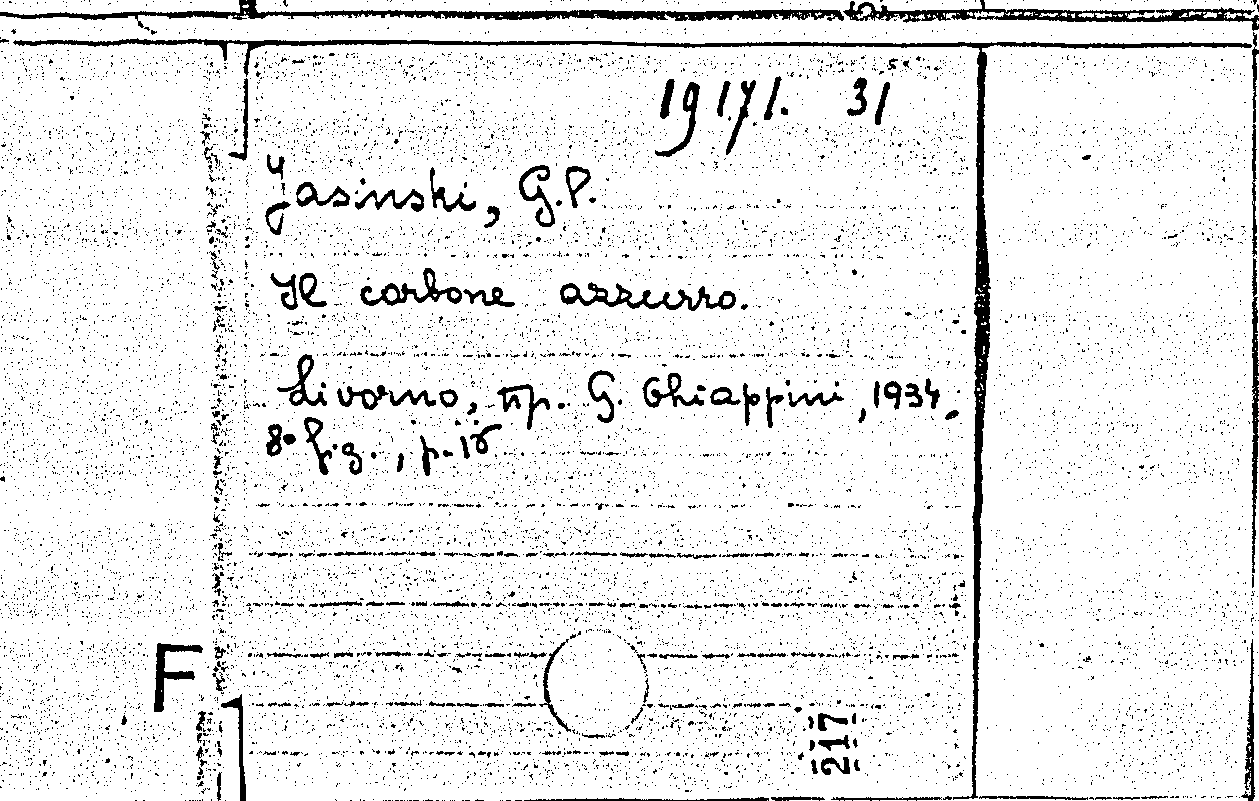 1917/1. 31
Jasinski, G.P.
Il carbone azzurro.
Livorno, tip. G. Chiappini, 1934.
8° fig., p.
F
217